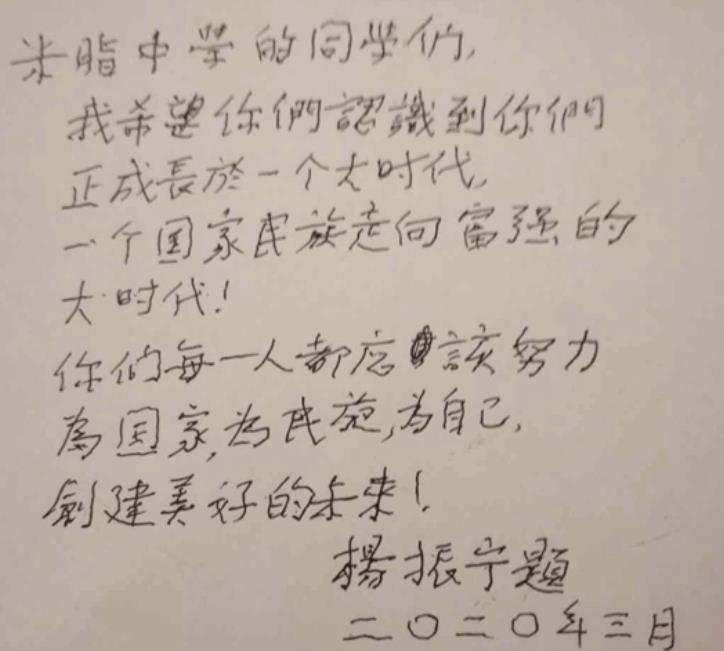 米脂中學的同学们,
我希望你們認識到你們
正成長於一个大时代,
一个国家民族走向富强的
大时代!
你们每一人都应該努力
為国家,为民族,为自己,
創建美好的未来!
楊振宁題
二〇二〇年三月